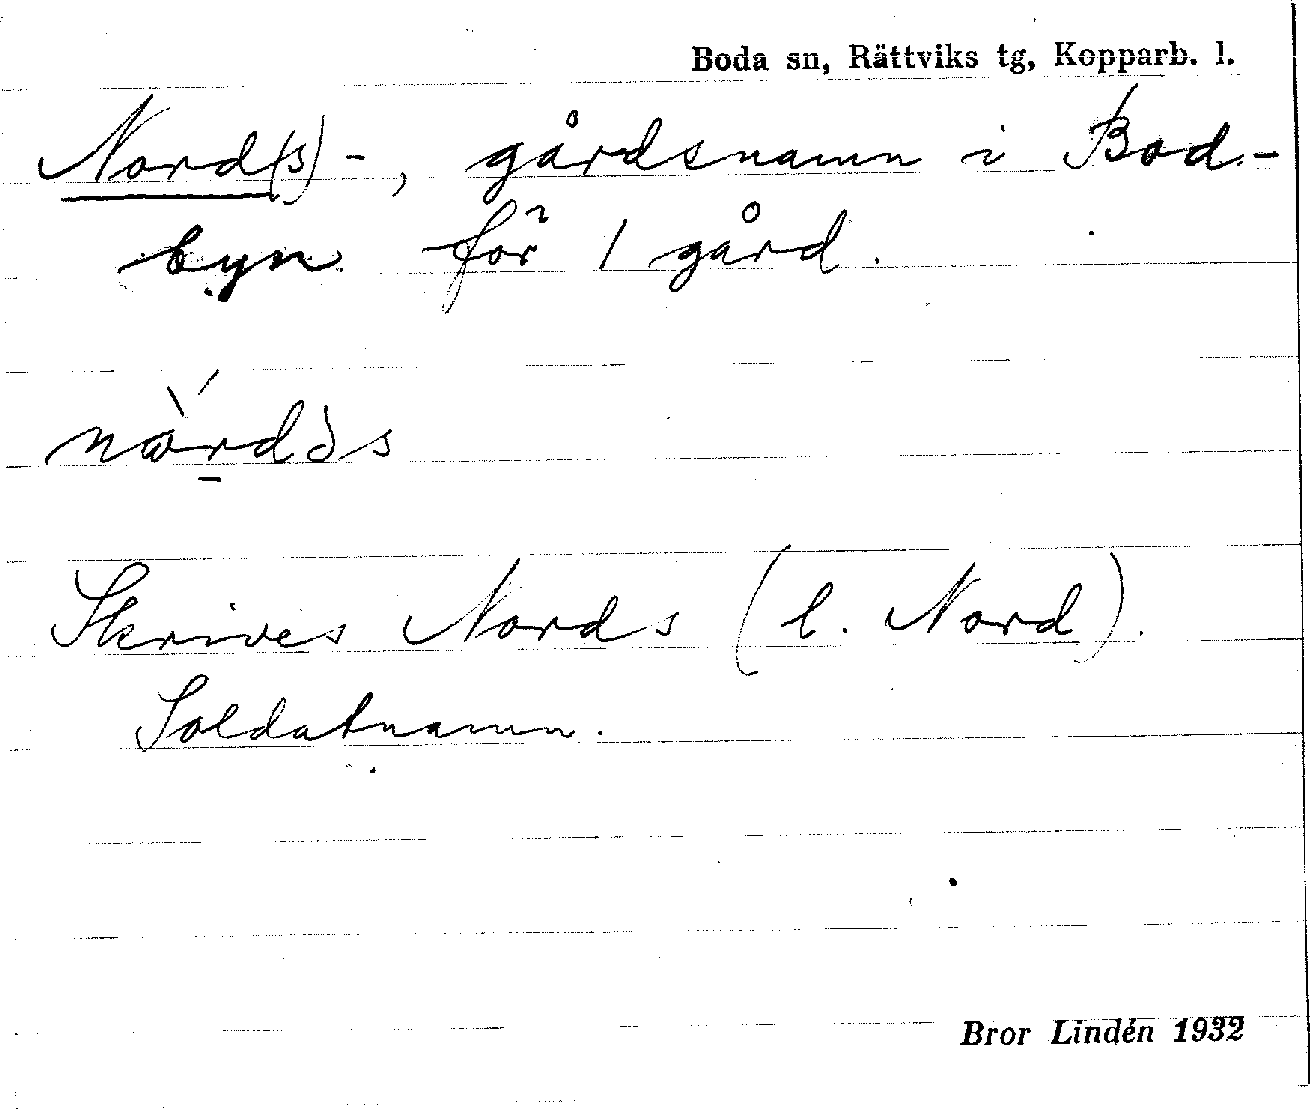 Boda sn, Rättviks tg, Kopparb. l.
Nord(s)-, gårdsnamn i Bod-
byn för 1 gård.
Skrives Nords (l. Nord).
Soldatnamn.
Bror Lindén 1932